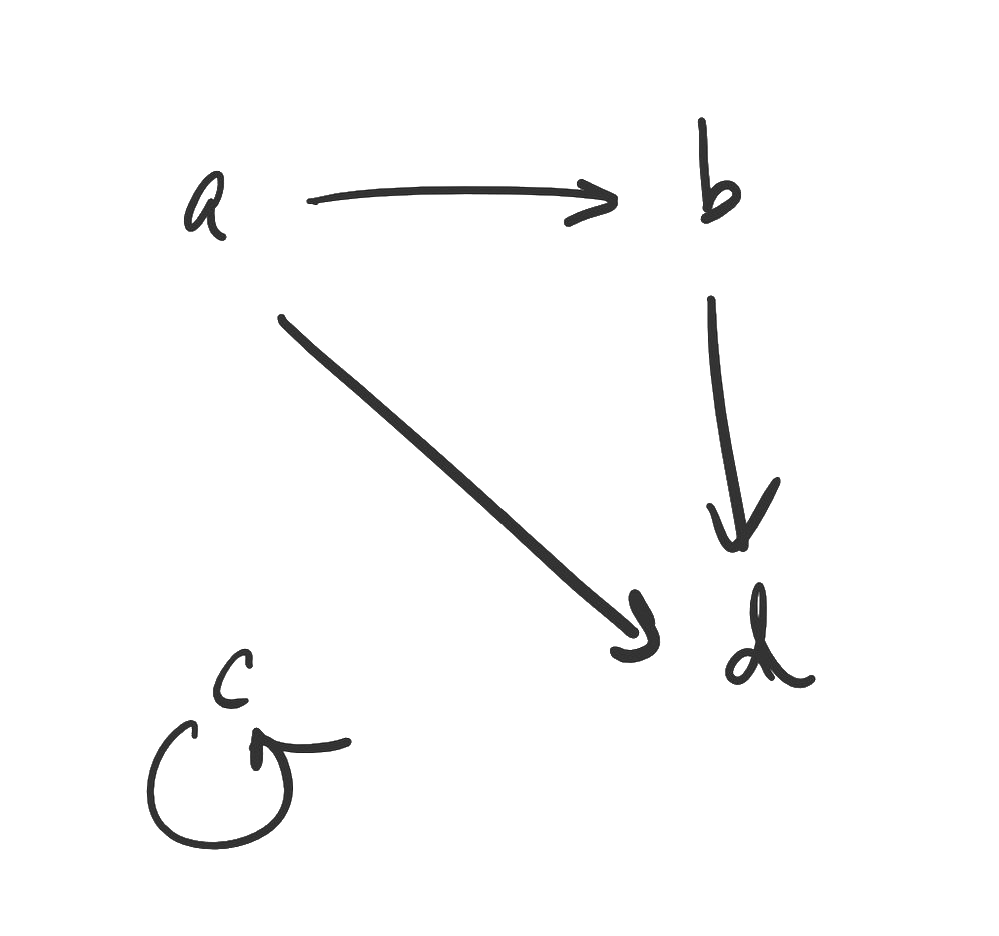 a b
d
c